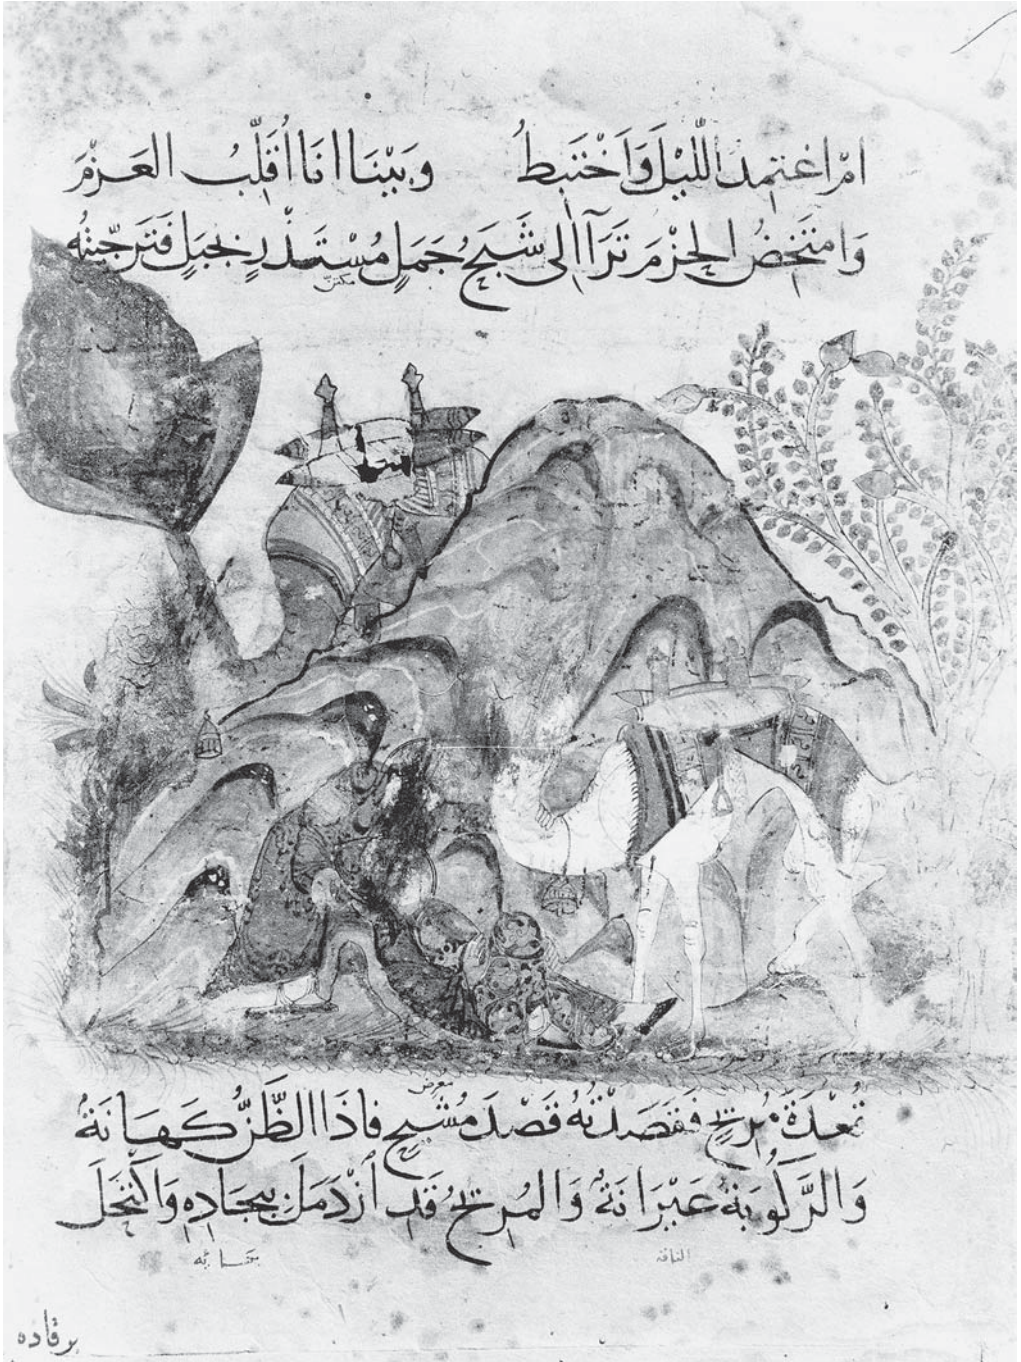 امْ اغتمِدُ اللّيْلَ وَاَخْتَبِطُ وَبَيْنَا انَا اُقَلِّبُ العَزْمَ
وَامتَخِضُ الحَزْمَ تَرَآ الى شَبَحُ جَمَلٍ مُسْتَذْرٍ بجَبَلٍ فَتَرَجّيتُهُ
قُعْدَةَ مُرِيحٍ فَقَصَدْتُهُ قَصْدَ مُشِيحٍ فاذَا الظَّنُّ كَهَانَةٌ
وَالرَّكُوبَةُ عَيْرَانَةٌ وَالمُرِيحُ قَدِ ازْدَمَلَ بِبِجَادِهِ وَاكْتَحَلَ
الناقة
برقاده